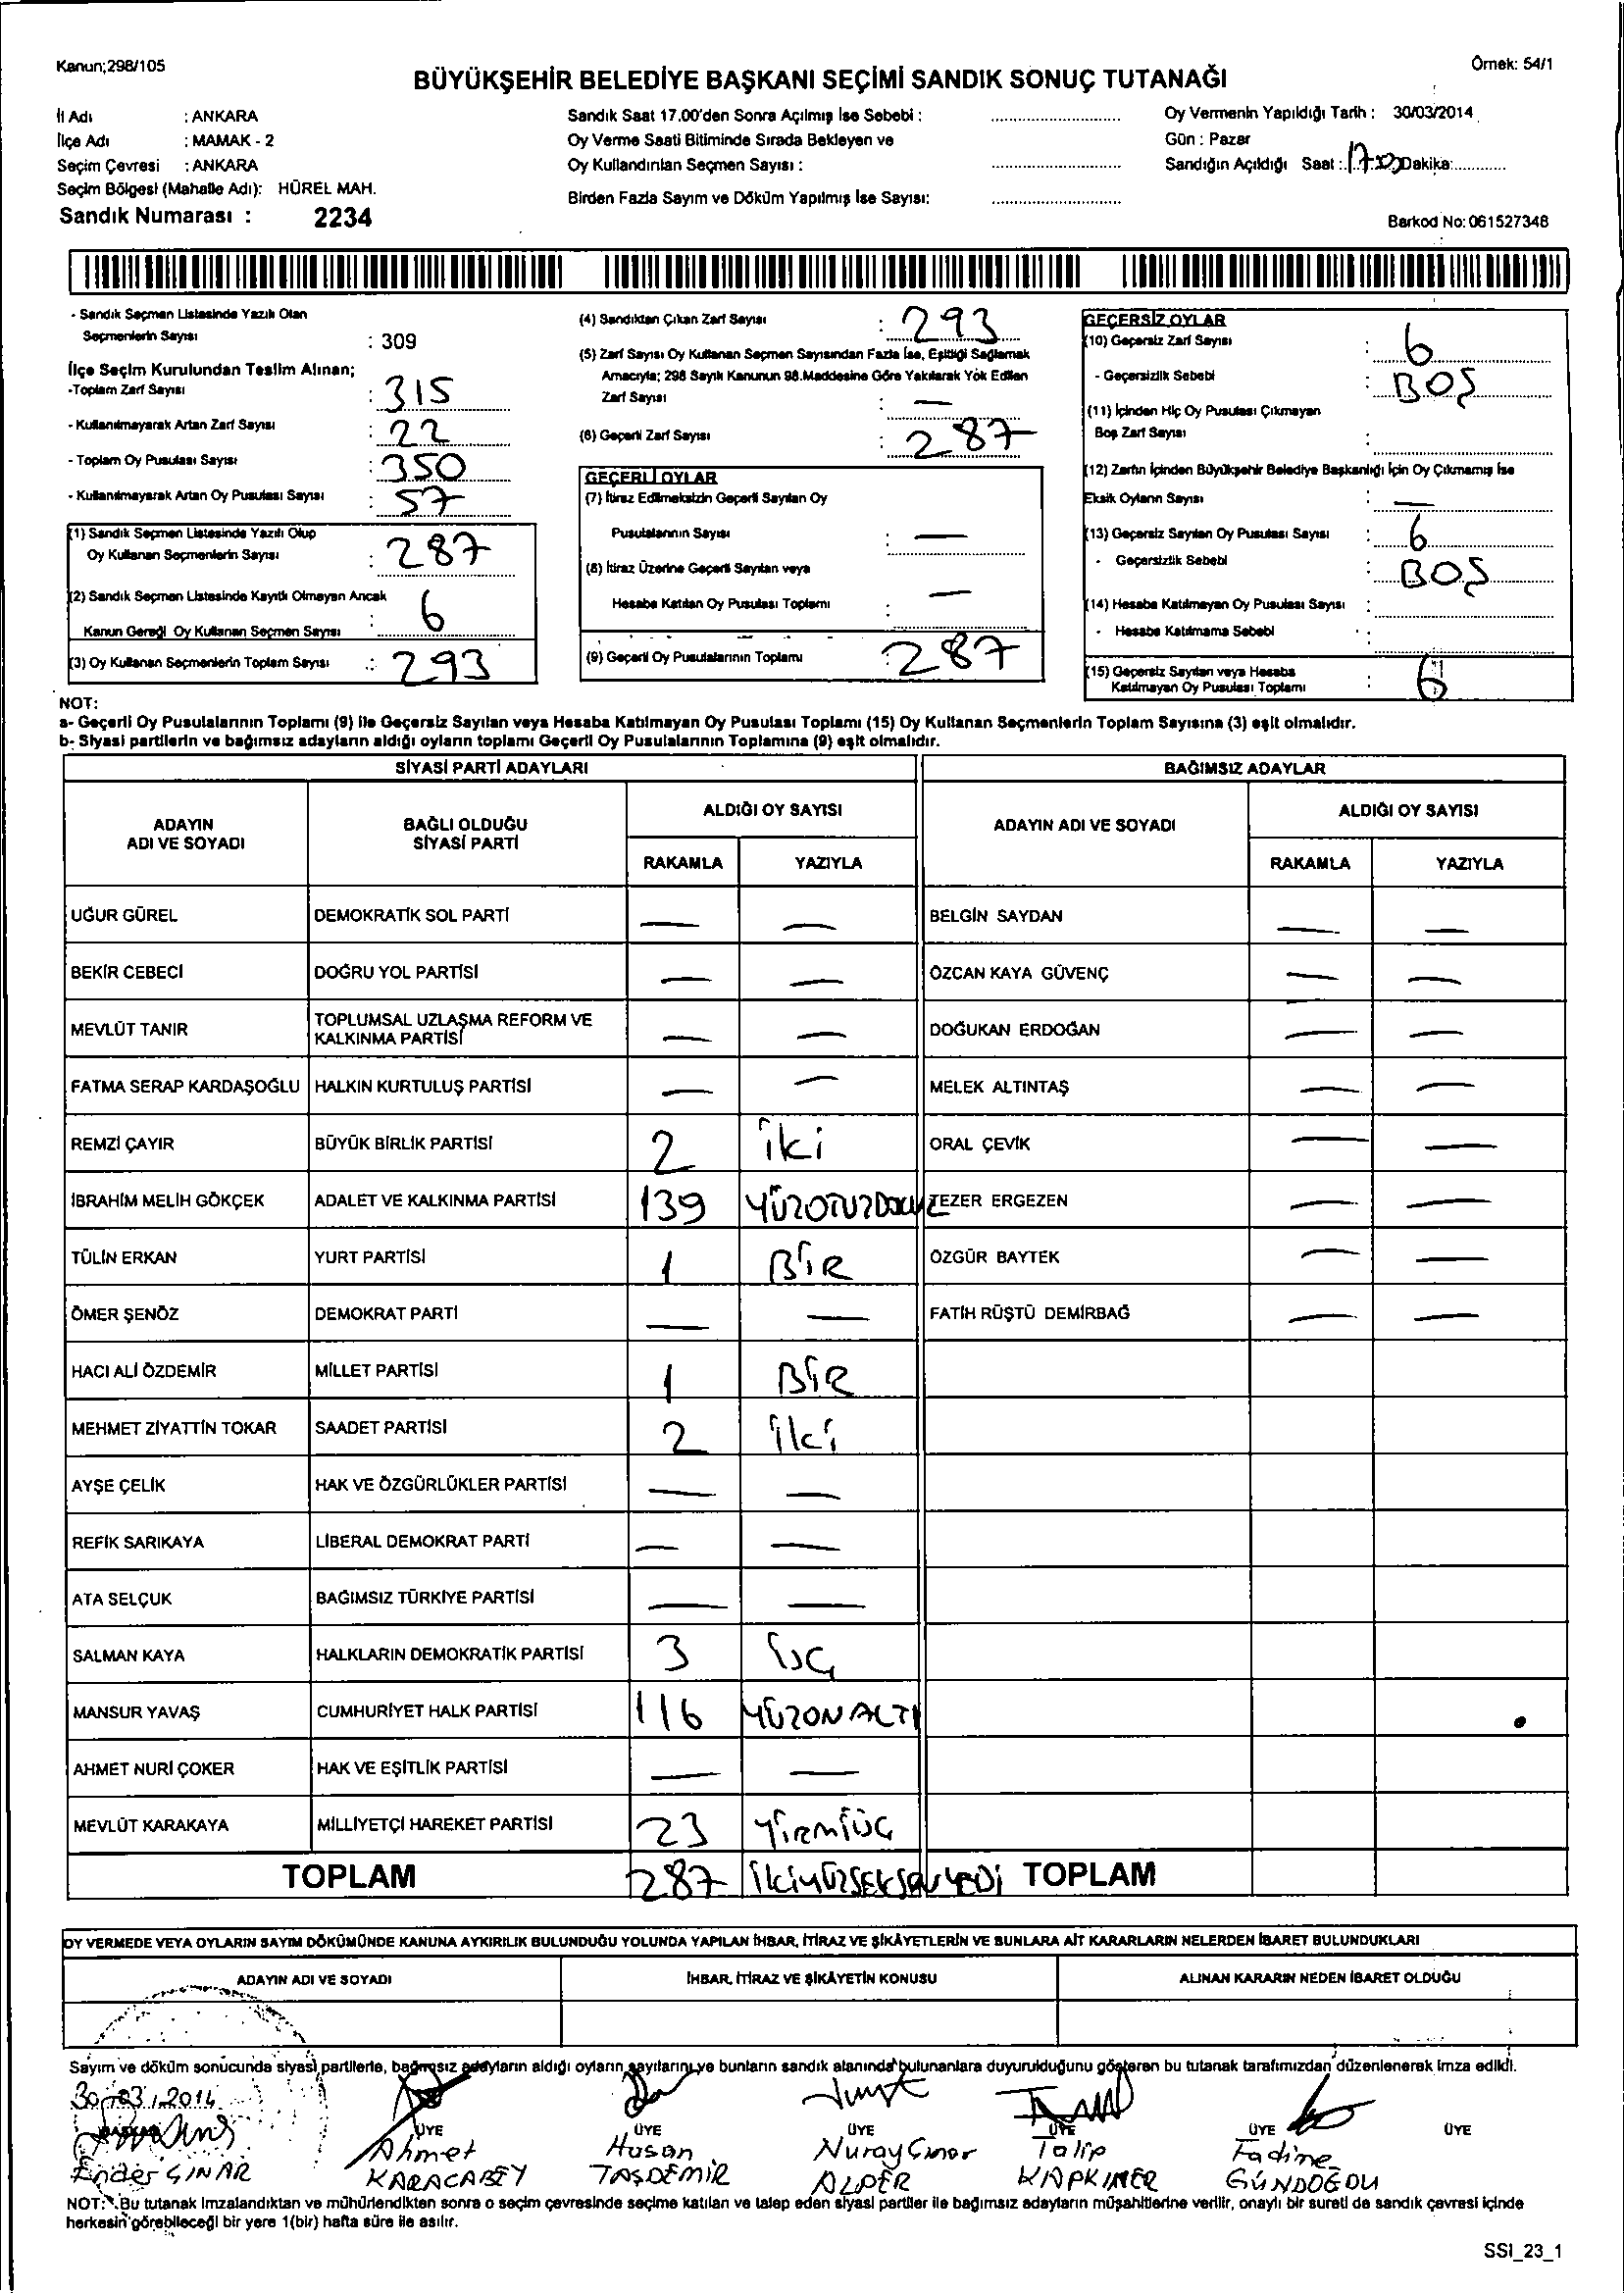 Kanun;298/105
Örnek: 54/1
BÜYÜKŞEHİR BELEDİYE BAŞKANI SEÇİMİ SANDIK SONUÇ TUTANAĞI
İl Adı : ANKARA
İlçe Adı : MAMAK - 2
Seçim Çevresi : ANKARA
Seçim Bölgesi (Mahalle Adı): HÜREL MAH.
Sandık Numarası : 2234
Sandık Saat 17.00'den Sonra Açılmış İse Sebebi :
Oy Verme Saati Bitiminde Sırada Bekleyen ve
Oy Kullandırılan Seçmen Sayısı :
Birden Fazla Sayım ve Döküm Yapılmış İse Sayısı:
Oy Vermenin Yapıldığı Tarih : 30/03/2014
Gün : Pazar
Sandığın Açıldığı Saat : 17.00 Dakika:
Barkod No: 061527348
- Sandık Seçmen Listesinde Yazılı Olan
Seçmenlerin Sayısı : 309
İlçe Seçim Kurulundan Teslim Alınan;
-Toplam Zarf Sayısı : 315
- Kullanılmayarak Artan Zarf Sayısı : 22
- Toplam Oy Pusulası Sayısı : 350
- Kullanılmayarak Artan Oy Pusulası Sayısı : 57
(1) Sandık Seçmen Listesinde Yazılı Olup
Oy Kullanan Seçmenlerin Sayısı : 287
(2) Sandık Seçmen Listesinde Kayıtlı Olmayan Ancak
Kanun Gereği Oy Kullanan Seçmen Sayısı : 6
(3) Oy Kullanan Seçmenlerin Toplam Sayısı : 293
(4) Sandıktan Çıkan Zarf Sayısı : 293
(5) Zarf Sayısı Oy Kullanan Seçmen Sayısından Fazla İse, Eşitliği Sağlamak
Amacıyla; 298 Sayılı Kanunun 98.Maddesine Göre Yakılarak Yok Edilen
Zarf Sayısı : —
(6) Geçerli Zarf Sayısı : 287
GEÇERLİ OYLAR
(7) İtiraz Edilmeksizin Geçerli Sayılan Oy
Pusulalarının Sayısı : —
(8) İtiraz Üzerine Geçerli Sayılan veya
Hesaba Katılan Oy Pusulası Toplamı : —
(9) Geçerli Oy Pusulalarının Toplamı : 287
GEÇERSİZ OYLAR
(10) Geçersiz Zarf Sayısı : 6
- Geçersizlik Sebebi : BOŞ
(11) İçinden Hiç Oy Pusulası Çıkmayan
Boş Zarf Sayısı :
(12) Zarfın İçinden Büyükşehir Belediye Başkanlığı İçin Oy Çıkmamış İse
Eksik Oyların Sayısı : —
(13) Geçersiz Sayılan Oy Pusulası Sayısı : 6
- Geçersizlik Sebebi : BOŞ
(14) Hesaba Katılmayan Oy Pusulası Sayısı :
- Hesaba Katılmama Sebebi :
(15) Geçersiz Sayılan veya Hesaba
Katılmayan Oy Pusulası Toplamı : 6
NOT:
a- Geçerli Oy Pusulalarının Toplamı (9) ile Geçersiz Sayılan veya Hesaba Katılmayan Oy Pusulası Toplamı (15) Oy Kullanan Seçmenlerin Toplam Sayısına (3) eşit olmalıdır.
b- Siyasi partilerin ve bağımsız adayların aldığı oyların toplamı Geçerli Oy Pusulalarının Toplamına (9) eşit olmalıdır.
SİYASİ PARTİ ADAYLARI BAĞIMSIZ ADAYLAR
ADAYIN ADI VE SOYADI BAĞLI OLDUĞU SİYASİ PARTİ ALDIĞI OY SAYISI ADAYIN ADI VE SOYADI ALDIĞI OY SAYISI
RAKAMLA YAZIYLA RAKAMLA YAZIYLA
UĞUR GÜREL DEMOKRATİK SOL PARTİ — — BELGİN SAYDAN — —
BEKİR CEBECİ DOĞRU YOL PARTİSİ — — ÖZCAN KAYA GÜVENÇ — —
MEVLÜT TANIR TOPLUMSAL UZLAŞMA REFORM VE KALKINMA PARTİSİ — — DOĞUKAN ERDOĞAN — —
FATMA SERAP KARDAŞOĞLU HALKIN KURTULUŞ PARTİSİ — — MELEK ALTINTAŞ — —
REMZİ ÇAYIR BÜYÜK BİRLİK PARTİSİ 2 iki ORAL ÇEVİK — —
İBRAHİM MELİH GÖKÇEK ADALET VE KALKINMA PARTİSİ 139 YÜZOTUZDOKUZ TEZER ERGEZEN — —
TÜLİN ERKAN YURT PARTİSİ 1 BİR ÖZGÜR BAYTEK — —
ÖMER ŞENÖZ DEMOKRAT PARTİ — — FATİH RÜŞTÜ DEMİRBAĞ — —
HACI ALİ ÖZDEMİR MİLLET PARTİSİ 1 BİR
MEHMET ZİYATTİN TOKAR SAADET PARTİSİ 2 iki
AYŞE ÇELİK HAK VE ÖZGÜRLÜKLER PARTİSİ — —
REFİK SARIKAYA LİBERAL DEMOKRAT PARTİ — —
ATA SELÇUK BAĞIMSIZ TÜRKİYE PARTİSİ — —
SALMAN KAYA HALKLARIN DEMOKRATİK PARTİSİ 3 ÜÇ
MANSUR YAVAŞ CUMHURİYET HALK PARTİSİ 116 YÜZONALTI
AHMET NURİ ÇOKER HAK VE EŞİTLİK PARTİSİ — —
MEVLÜT KARAKAYA MİLLİYETÇİ HAREKET PARTİSİ 23 YirmiÜÇ
TOPLAM 287 İKİYÜZSEKSENYEDİ TOPLAM
OY VERMEDE VEYA OYLARIN SAYIM DÖKÜMÜNDE KANUNA AYKIRILIK BULUNDUĞU YOLUNDA YAPILAN İHBAR, İTİRAZ VE ŞİKÂYETLERİN VE BUNLARA AİT KARARLARIN NELERDEN İBARET BULUNDUKLARI
ADAYIN ADI VE SOYADI İHBAR, İTİRAZ VE ŞİKÂYETİN KONUSU ALINAN KARARIN NEDEN İBARET OLDUĞU
Sayım ve döküm sonucunda siyasi partilerle, bağımsız adayların aldığı oyların sayılarını ve bunların sandık alanında bulunanlara duyurulduğunu gösteren bu tutanak tarafımızdan düzenlenerek imza edildi.
30/03/2014
ÜYE ÜYE ÜYE ÜYE ÜYE ÜYE
Ender ÇINAR
Ahmet KARACABEY
Hasan TAŞDEMİR
Nuray Çınar ALPER
Talip KAPKINER
Fadime GÜNDOĞDU
NOT: Bu tutanak imzalandıktan ve mühürlendikten sonra o seçim çevresinde seçime katılan ve talep eden siyasi partiler ile bağımsız adayların müşahitlerine verilir, onaylı bir sureti de sandık çevresi içinde
herkesin görebileceği bir yere 1(bir) hafta süre ile asılır.
SSI_23_1